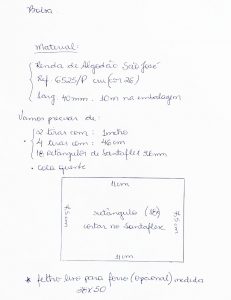 Bolsa
Material:
Renda de Algodão São José
Ref 6525/P cru (cor 26)
Larg. 40mm. 10m na embalagem
Vamos precisar de:
2 tiras com: 1 metro
4 tiras com: 46 cm
retângulos de Santaflex
• Cola quente
11cm
retângulo
cortar no Santaflex
11cm
* feltro liso para forro (opcional) medidas